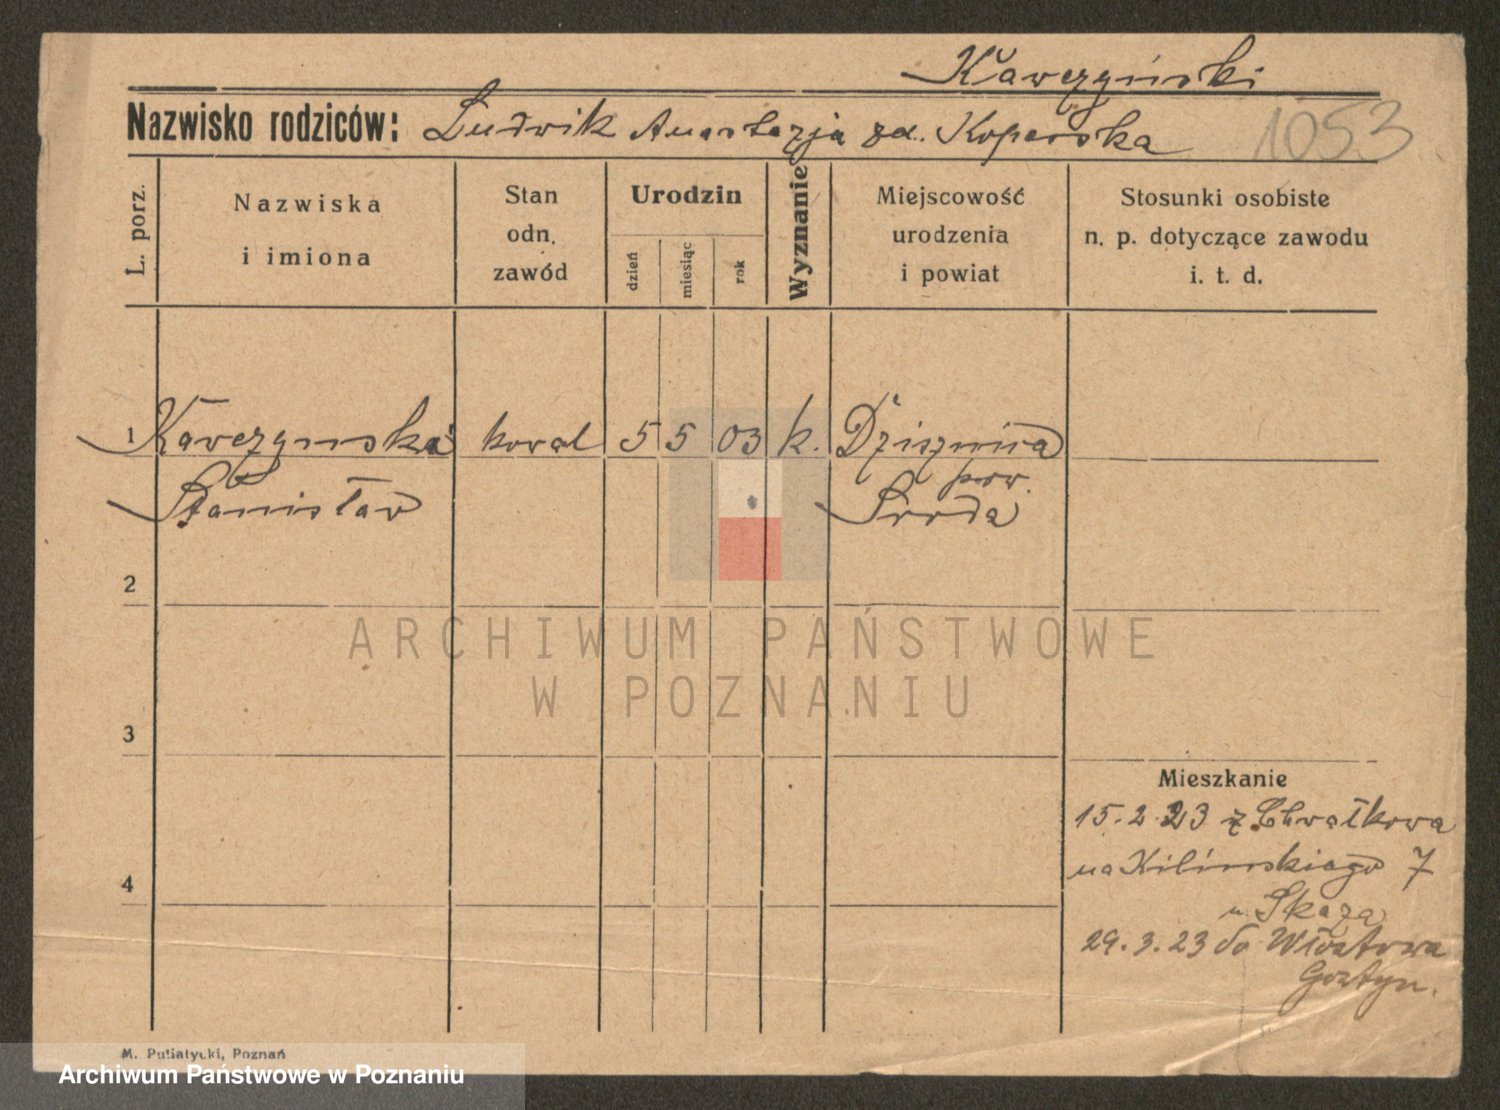 Kawczyński
Nazwisko rodziców: Ludwik Anastazja zd. Koperska 1053
L. porz.
Nazwiska
i imiona
Stan
odn.
zawód
Urodzin
dzień
miesiąc
rok
Wyznanie
Miejscowość
urodzenia
i powiat
Stosunki osobiste
n. p. dotyczące zawodu
i. t. d.
1 Kawczynski kowal 5 5 03 k.
pow.
Stanisław Środa
2
ARCHIWUM PAŃSTWOWE
W POZNANIU
3
Mieszkanie
15.2.23 z Chwałkowa
na Kilinskiego 7
u. Skaza
4
29.3.23 do
Gostyn.
M. Putiatycki, Poznań
Archiwum Państwowe w Poznaniu